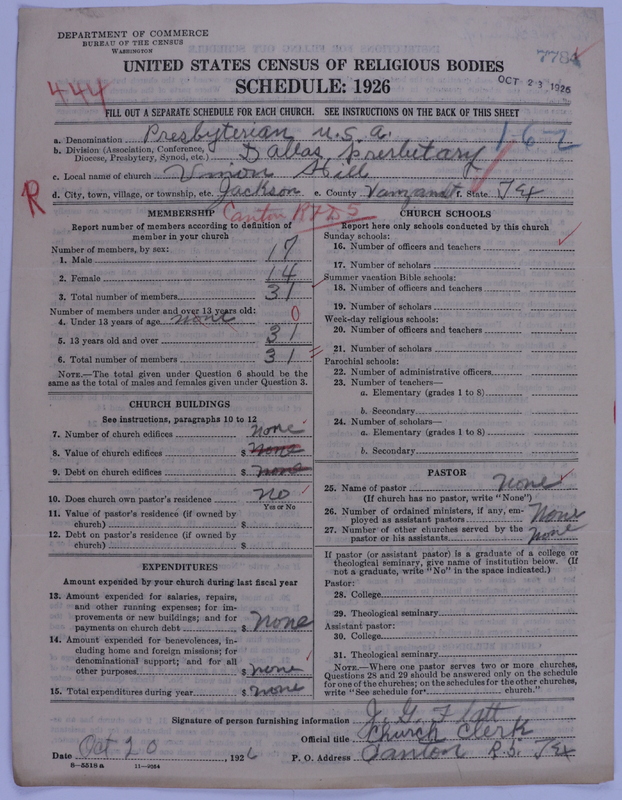 DEPARTMENT OF COMMERCE
BUREAU OF THE CENSUS
WASHINGTON
7784
UNITED STATES CENSUS OF RELIGIOUS BODIES
OCT 23 1926
SCHEDULE: 1926
444
FILL OUT A SEPARATE SCHEDULE FOR EACH CHURCH. SEE INSTRUCTIONS ON THE BACK OF THIS SHEET
a. Denomination Presbyterian U.S.A.
1-6-2
b. Division (Association, Conference, Diocese, Presbytery, Synod, etc.) Dallas Presbutary
c. Local name of church Union Hill
R
d. City, town, village, or township, etc. Jackson e. County Vanzandt f. State Tex
Canton RFD 5
MEMBERSHIP
Report number of members according to definition of
member in your church
Number of members, by sex:
1. Male 17
2. Female 14
3. Total number of members 31
Number of members under and over 13 years old:
4. Under 13 years of age none 0
5. 13 years old and over 31
6. Total number of members 31
NOTE.—The total given under Question 6 should be
same as the total of males and females given under Question 3.
CHURCH BUILDINGS
See instructions, paragraphs 10 to 12
7. Number of church edifices none
8. Value of church edifices $ none
9. Debt on church edifices $ none
10. Does church own pastor's residence no
Yes or No
11. Value of pastor's residence (if owned by
church) $
12. Debt on pastor's residence (if owned by
church) $
EXPENDITURES
Amount expended by your church during last fiscal year
13. Amount expended for salaries, repairs,
and other running expenses; for im-
provements or new buildings; and for
payments on church debt $ none
14. Amount expended for benevolences, in-
cluding home and foreign missions; for
denominational support; and for all
other purposes $ none
15. Total expenditures during year $ none
CHURCH SCHOOLS
Report here only schools conducted by this church
Sunday schools:
16. Number of officers and teachers
17. Number of scholars
Summer vacation Bible schools:
18. Number of officers and teachers
19. Number of scholars
Week-day religious schools:
20. Number of officers and teachers
21. Number of scholars
Parochial schools:
22. Number of administrative officers
23. Number of teachers—
a. Elementary (grades 1 to 8)
b. Secondary
24. Number of scholars—
a. Elementary (grades 1 to 8)
b. Secondary
PASTOR
25. Name of pastor None
(If church has no pastor, write "None")
26. Number of ordained ministers, if any, em-
ployed as assistant pastors None
27. Number of other churches served by the
pastor or his assistants None
If pastor (or assistant pastor) is a graduate of a college or
theological seminary, give name of institution below. (If
not a graduate, write "No" in the space indicated.)
Pastor:
28. College
29. Theological seminary
Assistant pastor:
30. College
31. Theological seminary
NOTE.—Where one pastor serves two or more churches,
Questions 28 and 29 should be answered only on the schedule
for one of the churches; on the schedules for the other churches,
write "See schedule for church."
Signature of person furnishing information J. G. Flatt
Official title Church Clerk
Date Oct 20, 1926 P. O. Address Canton R.5. Tex
8-5518 a 11-9034